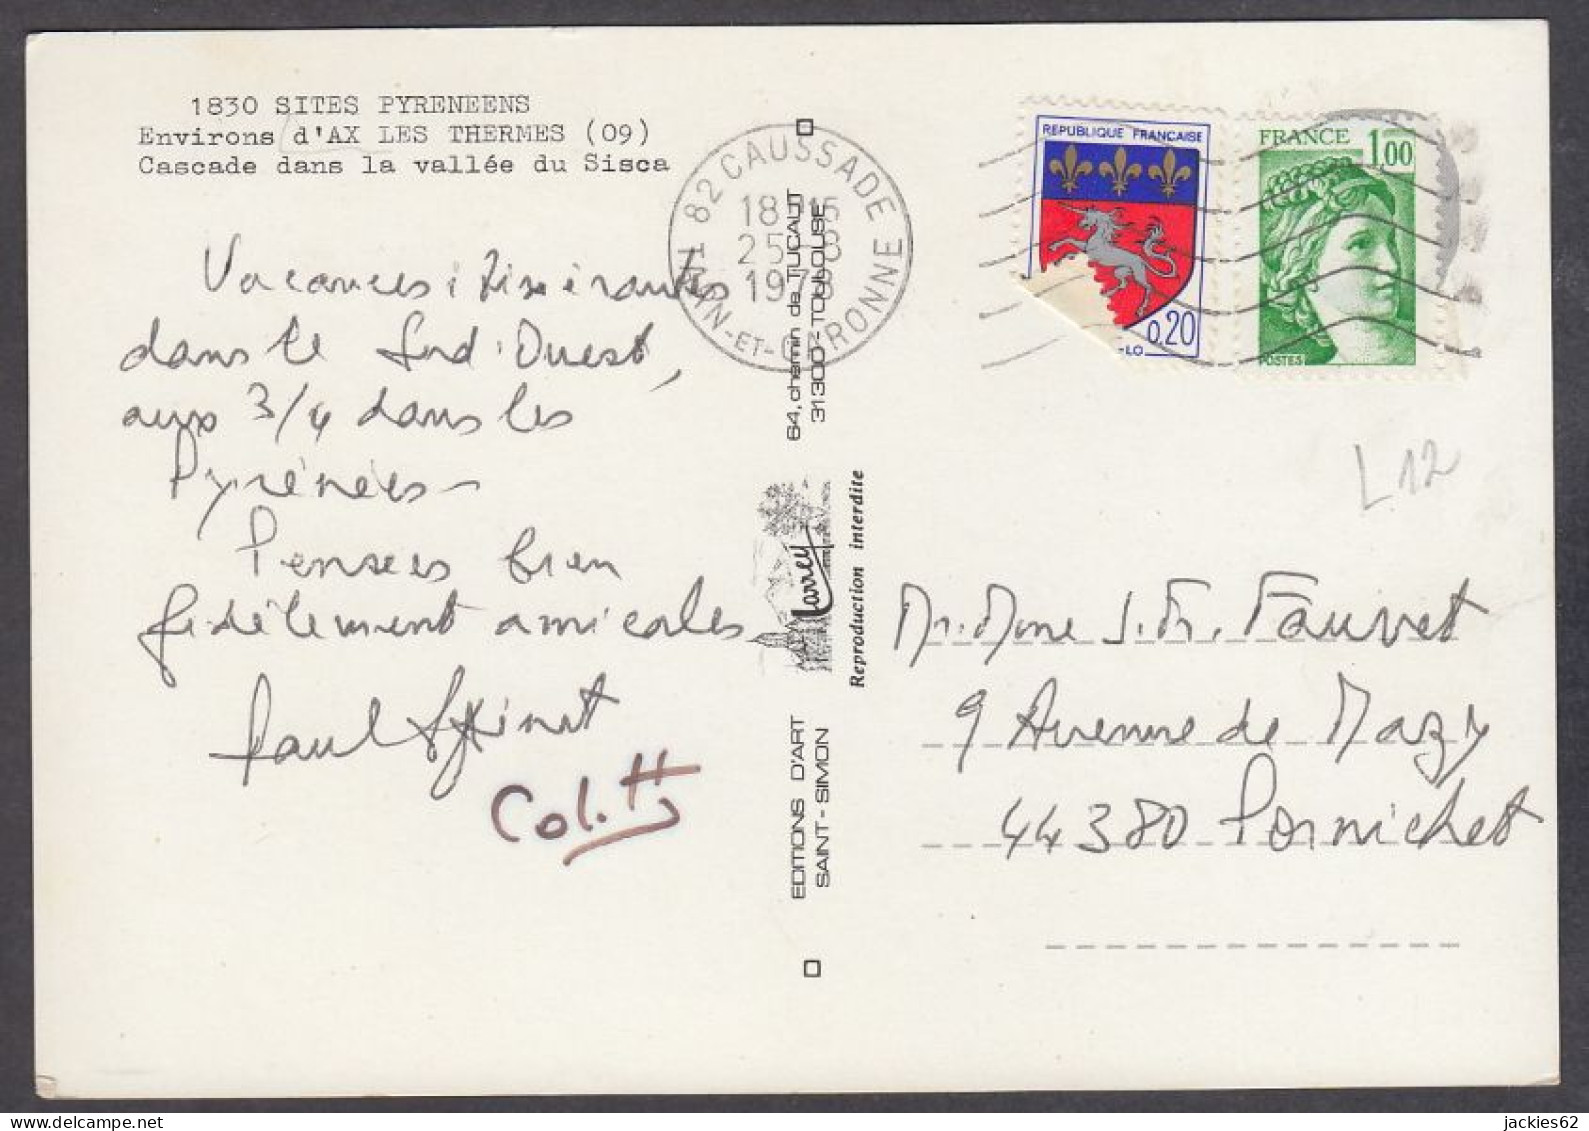 1830 SITES PYRENEENS
Environs d'AX LES THERMES (09)
Cascade dans la vallée du Sisca
Vacances itinérantes
dans le Sud-Ouest,
aux 3/4 dans les
Pyrénées-
Pensées bien
fidèlement amicales
Paul
Colette
82 CAUSSADE
18H15
25-8
1978
TARN-ET-GARONNE
64, chemin de TUCAUT
31300 - TOULOUSE
Larrey
Reproduction interdite
EDITIONS D'ART
SAINT-SIMON
REPUBLIQUE FRANÇAISE
0.20
-LO
FRANCE 1.00
POSTES
L12
Mr. Mme J. Fr. Fauvet
9 Avenue de Mazy
44380 Pornichet
jackies62